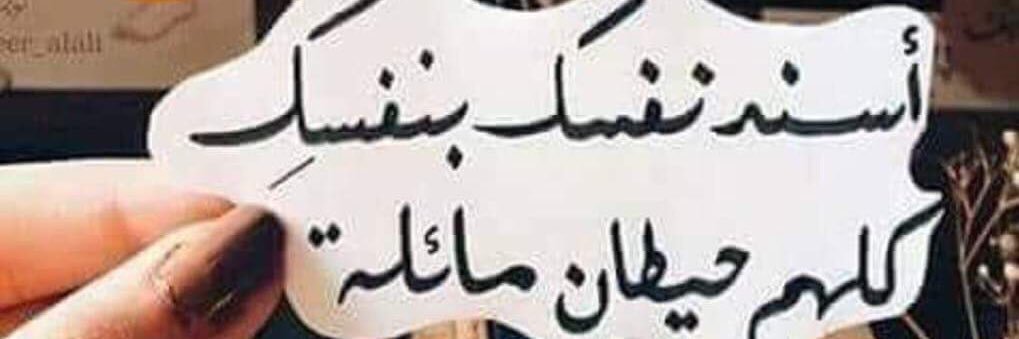 أسند نفسك بنفسكِ
كلهم حيطان مائلة